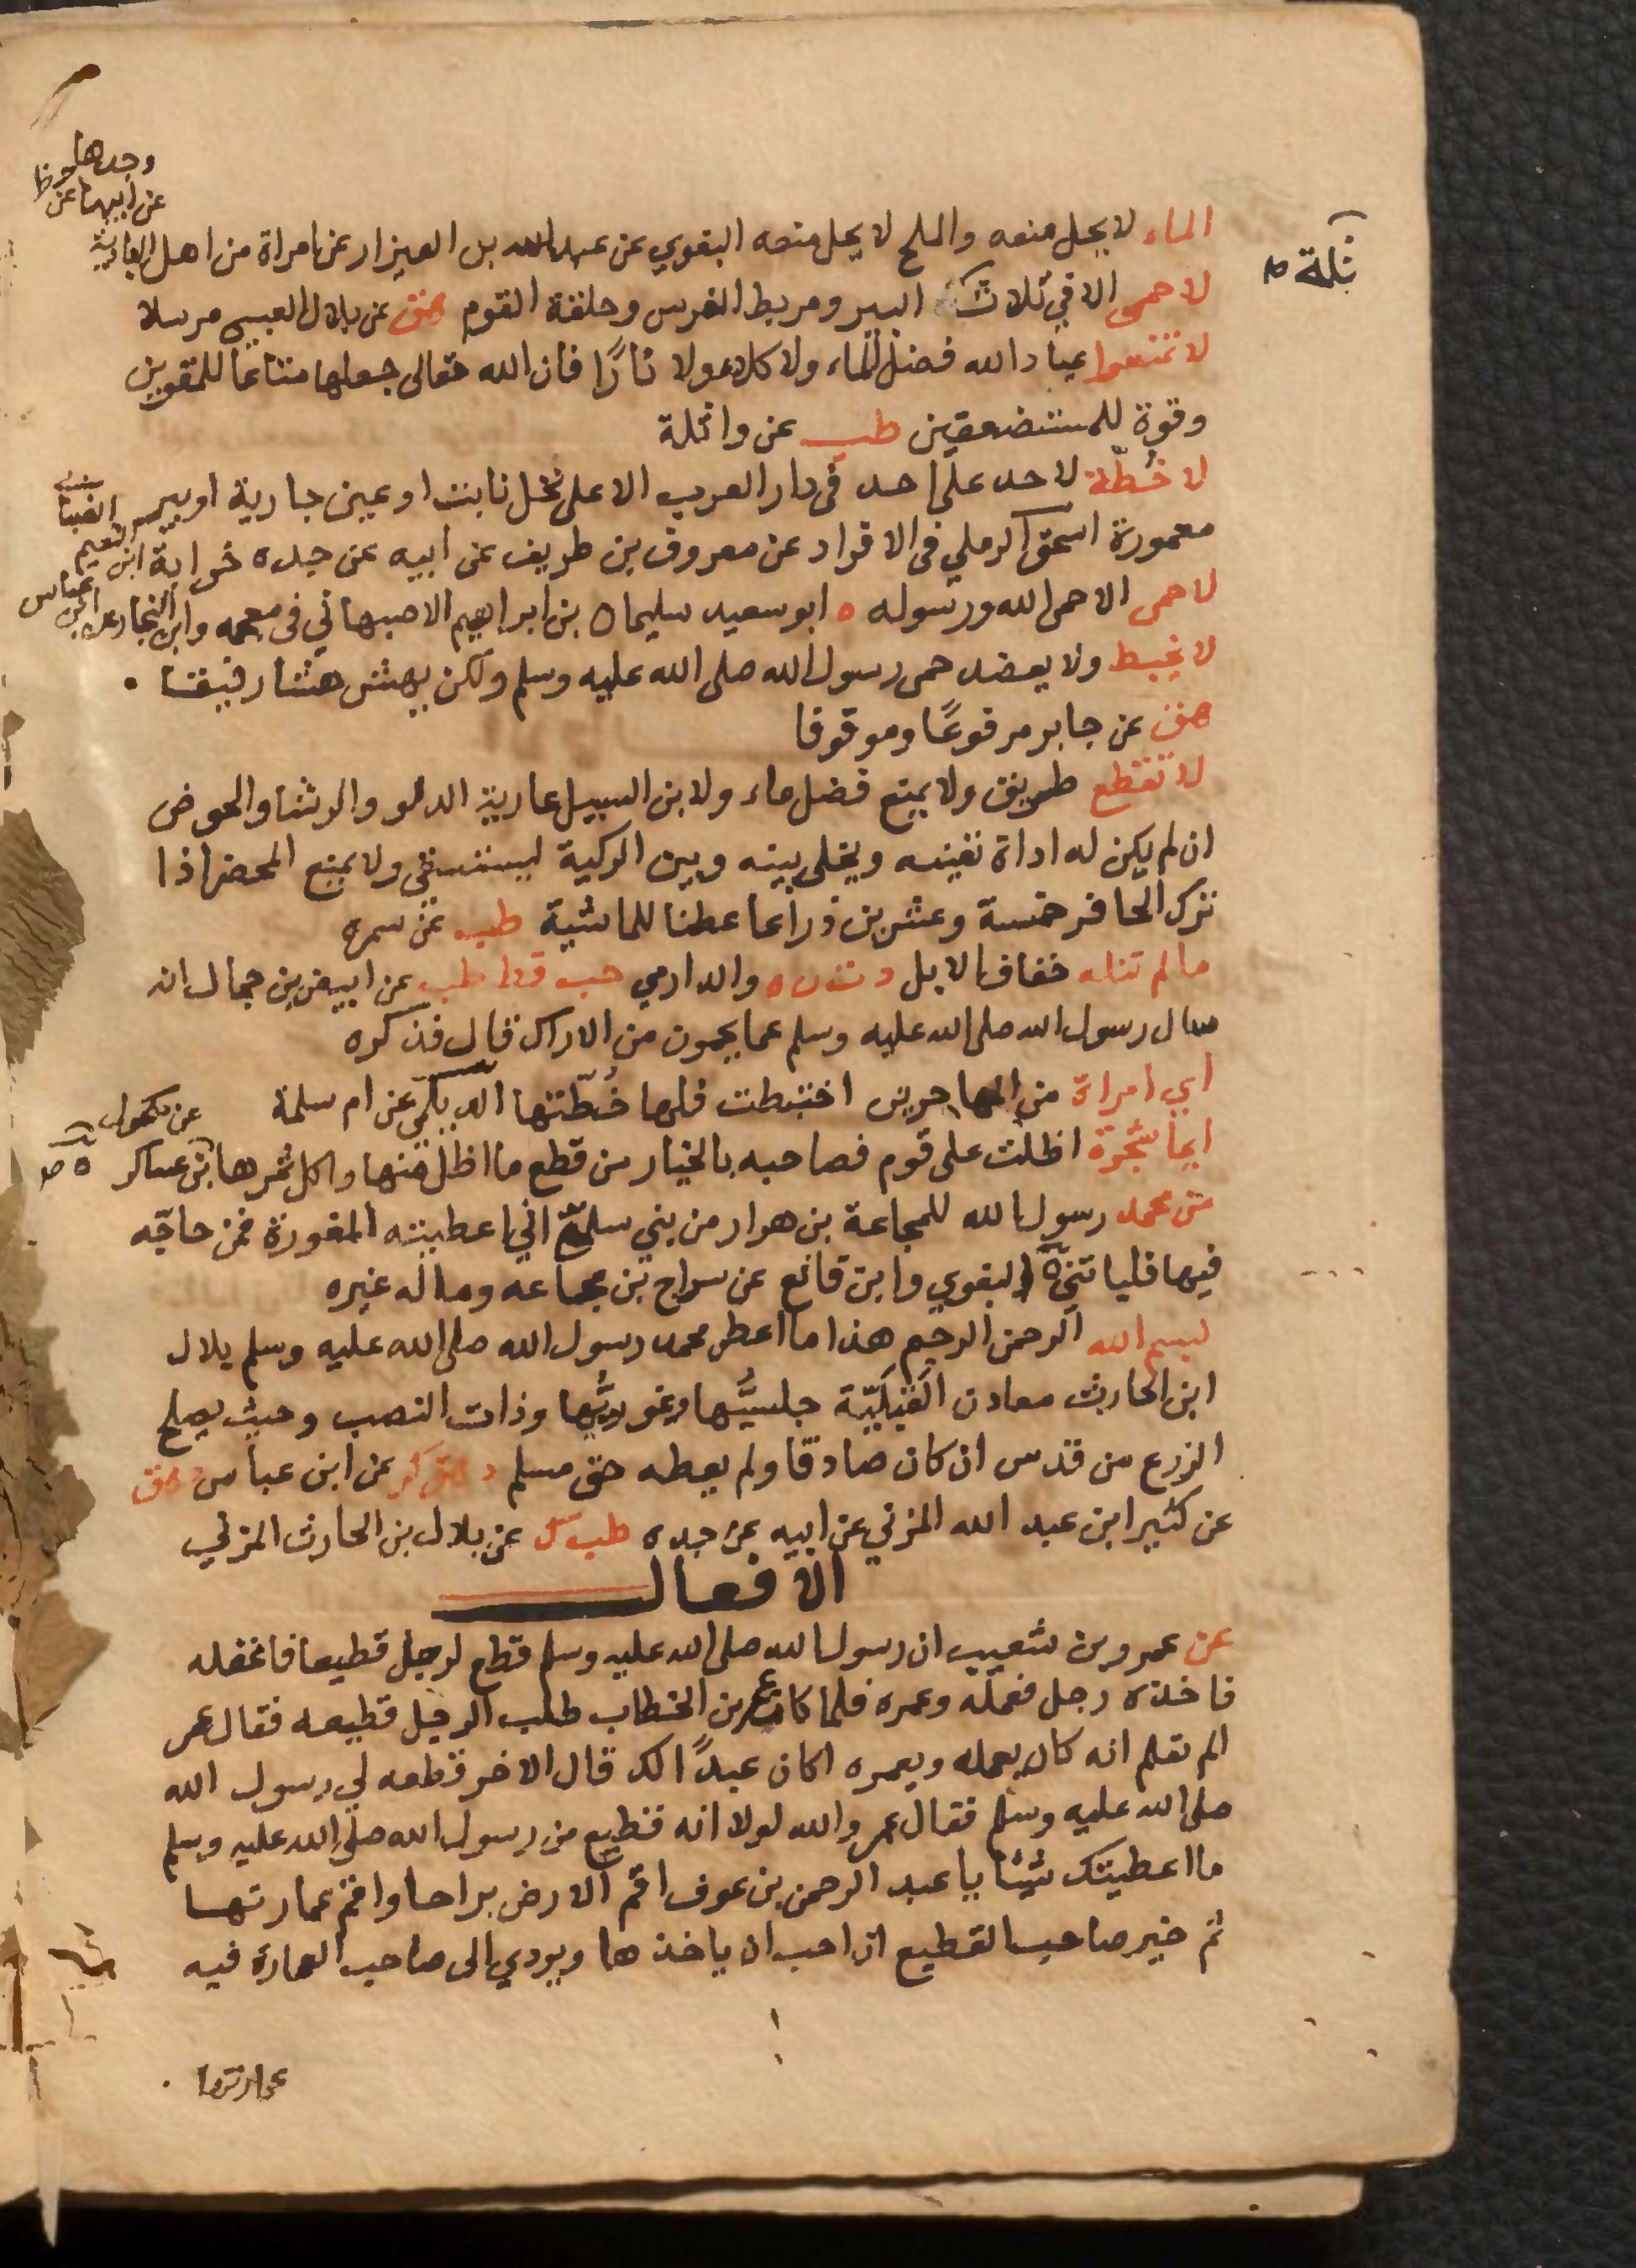 وجدها
عن ابيها عن
الماء لا يحل منعه والملح لا يحل منعه البغوي عن عبد الله بن العيزار عن امراة من اهل البادية
ثلة ص
لا حمى الا في ثلاث البير ومربط الفرس وحلقة القوم هق عن بلال العبسي مرسلا
لا تمنعوا عباد الله فضل الماء ولا كلاء ولا نارًا فان الله تعالى جعلها متاعا للمقوين
وقوة للمستضعفين طب عن واثلة
لا خُطّة لاحد على احد فى دار العرب الا على نخل نابت او عين جارية او بير
معمورة اسحق الرملي فى الافراد عن معروف بن طريف عن ابيه عن جده حزابة ابن نعيم
لا حمى الا حمى الله ورسوله ه ابو سعيد سليمان بن ابراهيم الاصبهاني فى معجمه وابن النجار عن ابن عباس
لا يخبط ولا يعضد حمى رسول الله صلى الله عليه وسلم ولكن يهش هشا رفيقا
هق عن جابر مرفوعًا وموقوفا
لا تقطع طريق ولا يمنع فضل ماء ولابن السبيل عارية الدلو والرشا والحوض
ان لم يكن له اداة تغنيه ويخلى بينه وبين الركية ليستسقى ولا يمنع المحضر اذا
ترك الحافر خمسة وعشرين ذراعا عطنا للماشية طب عن سمره
ما لم تنله خفاف الابل د ت ن ه والدارمي حب قط طب عن ابيض بن حمال انه
سال رسول الله صلى الله عليه وسلم عما يحمون من الاراك قال فذكره
اي امراة من المهاجرين اختطت فلها خُطّتها الديلمي عن ام سلمة
ايما شجرة اظلت على قوم فصاحبه بالخيار من قطع ما اظل منها واكل ثمرها ابن عساكر عن مكحول
من محمد رسول الله للمجاعة بن مرار من بني سلمى اني اعطيته الغورة فمن حاجّه
فيها فلياتني البغوي وابن قانع عن سراج بن مجاعه وماله غيره
بسم الله الرحمن الرحيم هذا ما اعطى محمد رسول الله صلى الله عليه وسلم بلال
ابن الحارث معادن القَبَليّة جلسيُّها وغوريُّها وذات النصب وحيث يصلح
الزرع من قدس ان كان صادقا ولم يعطه حق مسلم د هق كر عن ابن عباس هق
عن كثير ابن عبد الله المزني عن ابيه عن جده طب ك عن بلال بن الحارث المزني
الافعال
عن عمرو بن شعيب ان رسول الله صلى الله عليه وسلم قطع لرجل قطيعا فاغفله
فاخذه رجل فعمله وعمره فلما كان عمر بن الخطاب طلب الرجل قطيعه فقال عمر
الم تعلم انه كان يعمله ويعمره اكان عبدًا لك قال الاخر قطعه لي رسول الله
صلى الله عليه وسلم فقال عمر والله لولا انه قطيع من رسول الله صلى الله عليه وسلم
ما اعطيتك شيئا يا عبد الرحمن بن عوف اقم الارض براحا واقم عمارتها
ثم خير صاحب القطيع ان احب ان ياخذها ويودي الى صاحب العمارة فيه
عمارتها